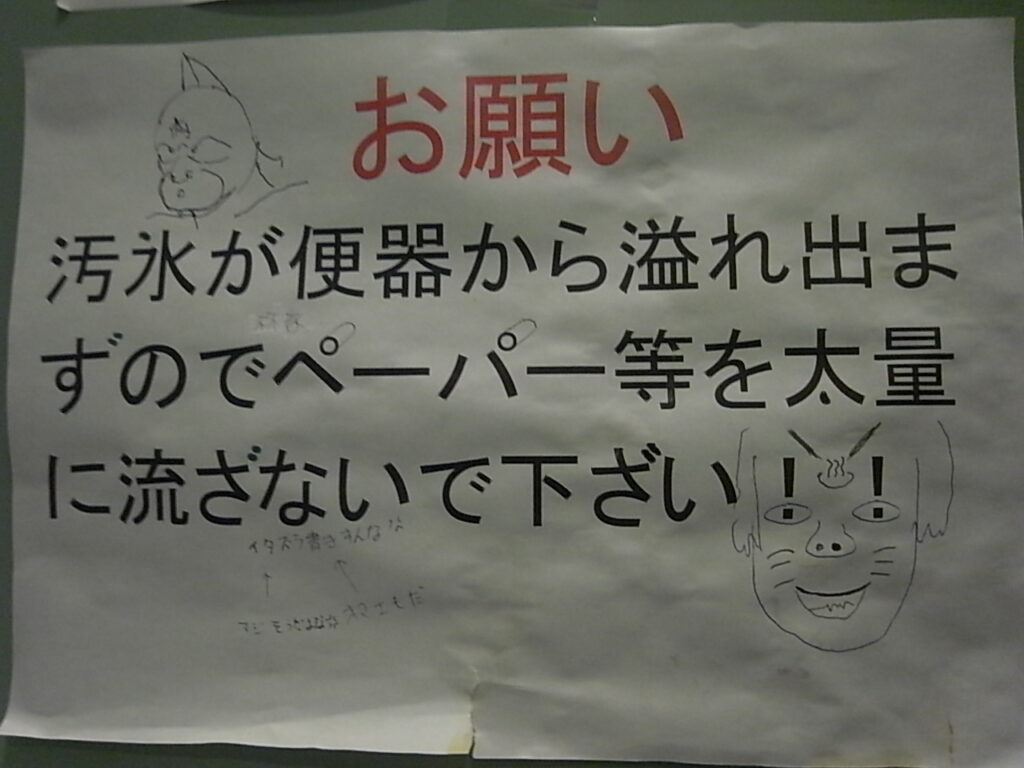 お願い
汚氷が便器から溢れ出ま
ずのでペーパー等を太量
に流ざないで下ざい!!
イタズラ書きすんなな
オマエもだ